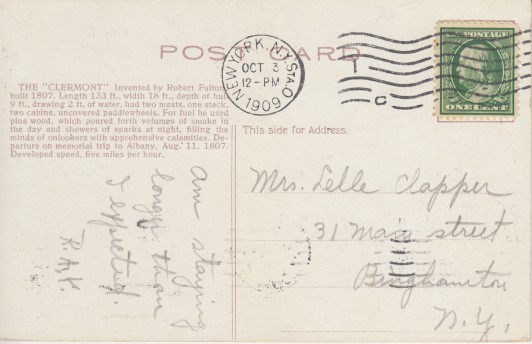 POST CARD
NEW YORK, N.Y. STA. O
OCT 3
12-PM
1909
U.S. POSTAGE
ONE CENT
THE "CLERMONT" Invented by Robert Fulton,
built 1807. Length 133 ft., width 18 ft., depth of hull
9 ft., drawing 2 ft. of water, had two masts, one stack,
two cabins, uncovered paddlewheels. For fuel he used
pine wood, which poured forth volumes of smoke in
the day and showers of sparks at night, filling the
minds of onlookers with apprehensive calamities. De-
parture on memorial trip to Albany, Aug. 11, 1807.
Developed speed, five miles per hour.
This side for Address.
Am staying
longer than
I expected.
Mrs. Lelle Clapper
31 Main street
Binghamton
N.Y.